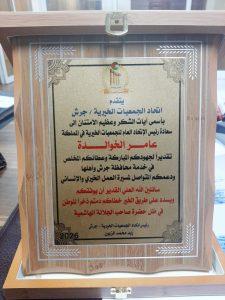 يتقدم
اتحاد الجمعيات الخيرية / جرش
بأسمى آيات الشكر وعظيم الامتنان الى
سعادة رئيس الاتحاد العام للجمعيات الخيرية في المملكة
عامر الخوالدة
تقديرا لجهودكم المباركة وعطائكم المخلص
في خدمة محافظة جرش وأهلها
ودعمكم المتواصل لمسيرة العمل الخيري والإنساني
سائلين الله العلي القدير ان يوفقكم
ويسدد على طريق الخير خطاكم دمتم ذخرا للوطن
في ظل حضرة صاحب الجلالة الهاشمية
رئيس اتحاد الجمعيات الخيرية - جرش
محمد الزبون
2026